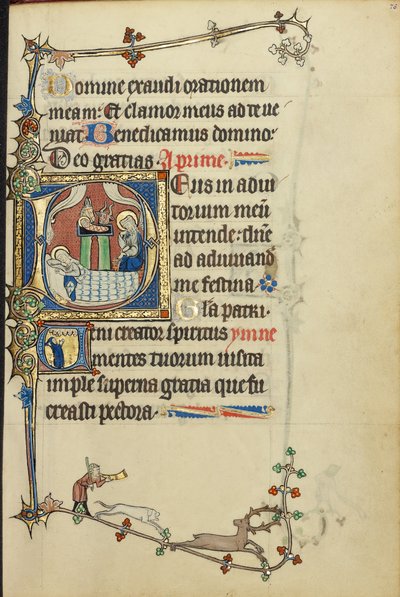 Domine exaudi orationem
meam. Et clamor meus ad te ve
niat. Benedicamus domino.
Deo gratias. A prime.
Deus in adiu
torium meū
intende: dñe
ad adiuuand
me festina.
Gła patri.
Ueni creator spiritus ymne
mentes tuorum uisita
imple superna gratia que tu
creasti pectora.